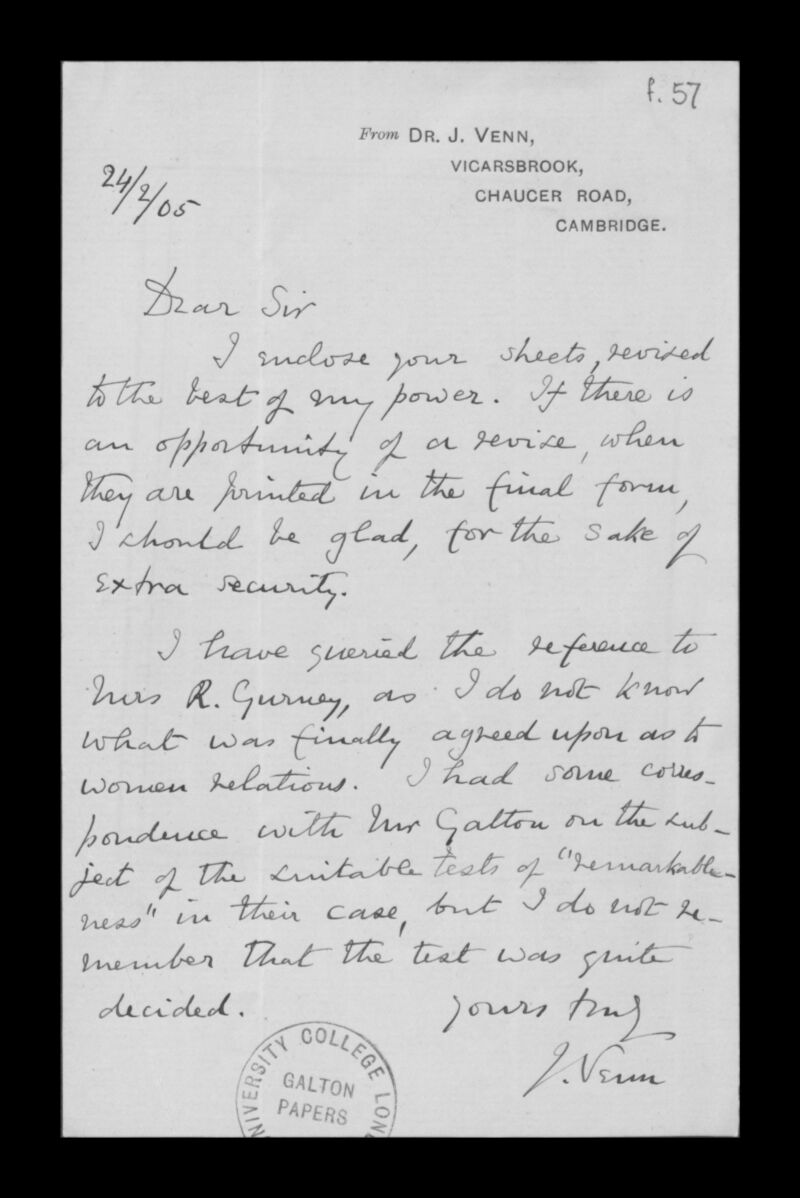 f. 57
From DR. J. VENN,
VICARSBROOK,
CHAUCER ROAD,
CAMBRIDGE.
24/2/05
Dear Sir
I enclose your sheets, revised
to the best of my power. If there is
an opportunity of a revise, when
they are printed in the final form,
I should be glad, for the sake of
extra security.
I have queried the reference to
Mrs R. Gurney, as I do not know
what was finally agreed upon as to
women relations. I had some corres-
pondence with Mr Galton on the sub-
ject of the suitable tests of "remarkable-
ness" in their case, but I do not re-
member that the test was quite
decided.
Yours truly
J. Venn
UNIVERSITY COLLEGE LON
GALTON
PAPERS